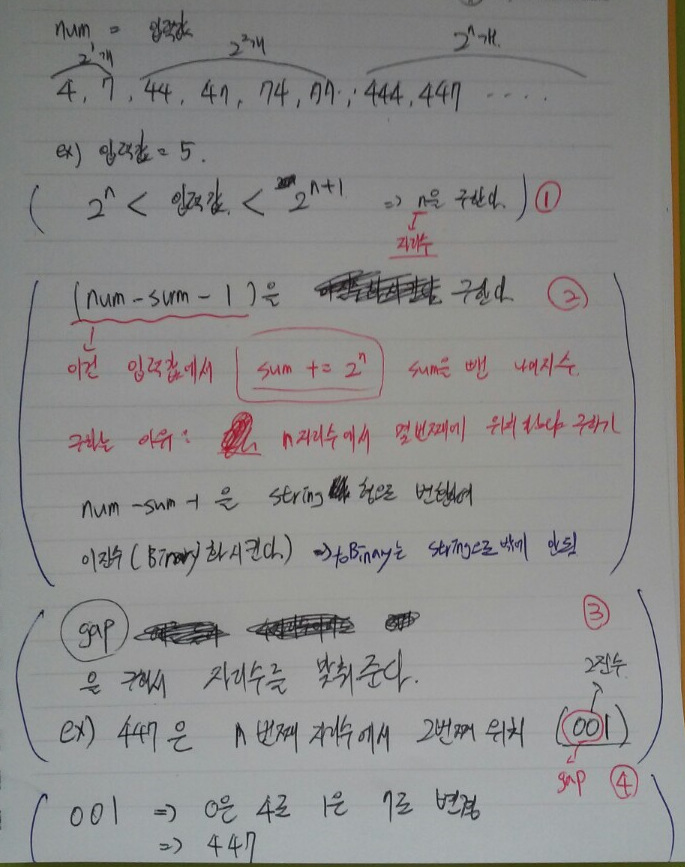 num = 입력값
2¹개 2²개 2ⁿ개.
4, 7, 44, 47, 74, 77, 444, 447 . . . . .
ex) 입력값 = 5.
( 2ⁿ < 입력값. < 2ⁿ⁺¹ => n을 구한다. ) ①
자리수
(num - sum - 1)을 구한다 ②
이건 입력값에서 sum += 2ⁿ sum을 뺀 나머지수.
구하는 이유 : n자리수에서 몇번째에 위치 하는지 구하기
num - sum - 1 을 string 형으로 변환하여
이진수 (Binary화시킨다.) => toBinary는 string으로 밖에 안됨
gap ③
을 구해서 자리수를 맞춰준다. 2진수.
ex) 447은 n번째 자리수에서 2번째 위치 (001)
gap ④
001 => 0은 4로 1은 7로 변경
=> 447